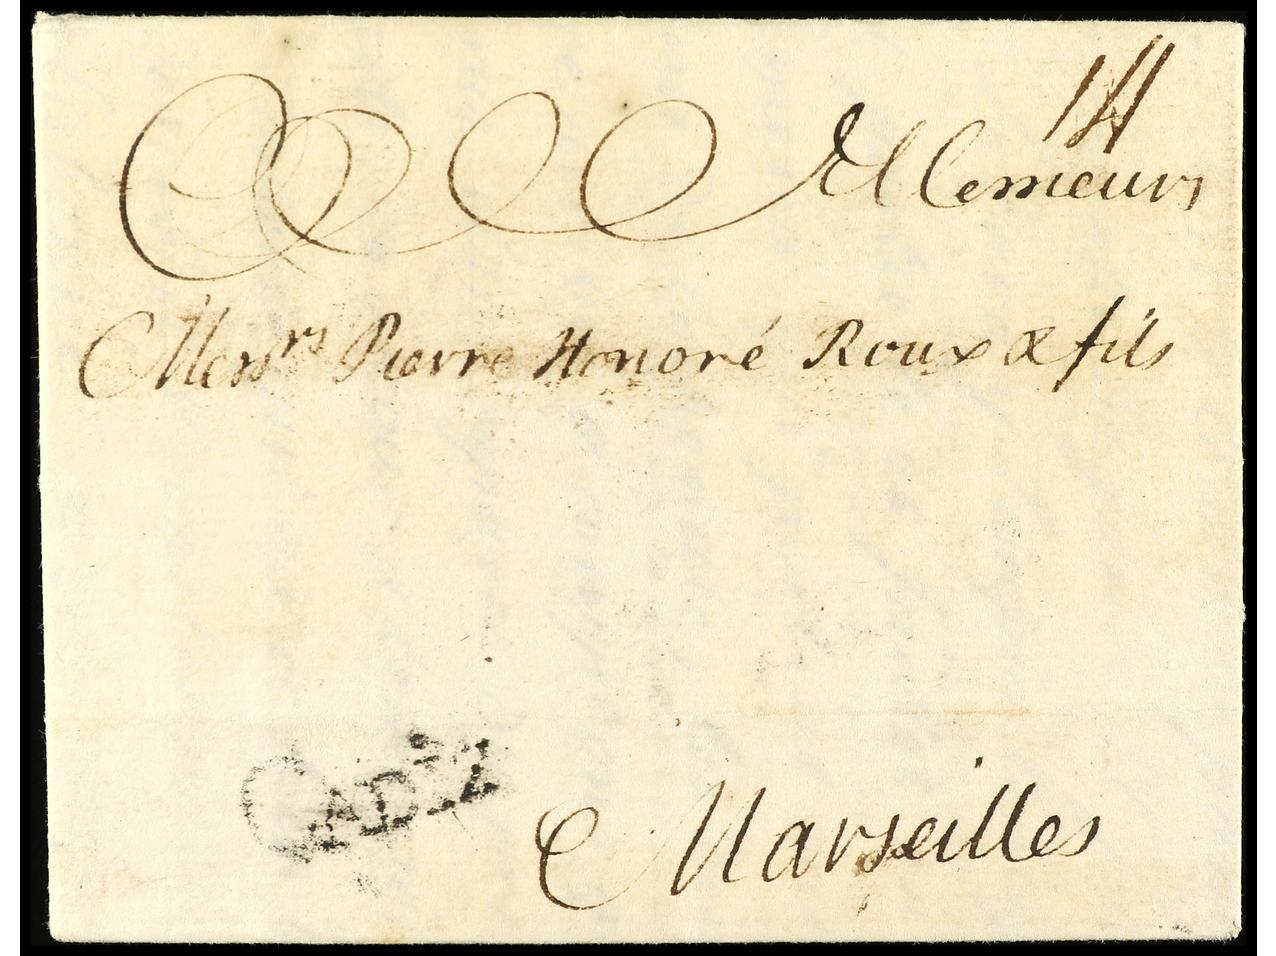 14
A Messieurs
Messrs Pierre Honoré Roux & fils
CADIZ
Marseilles